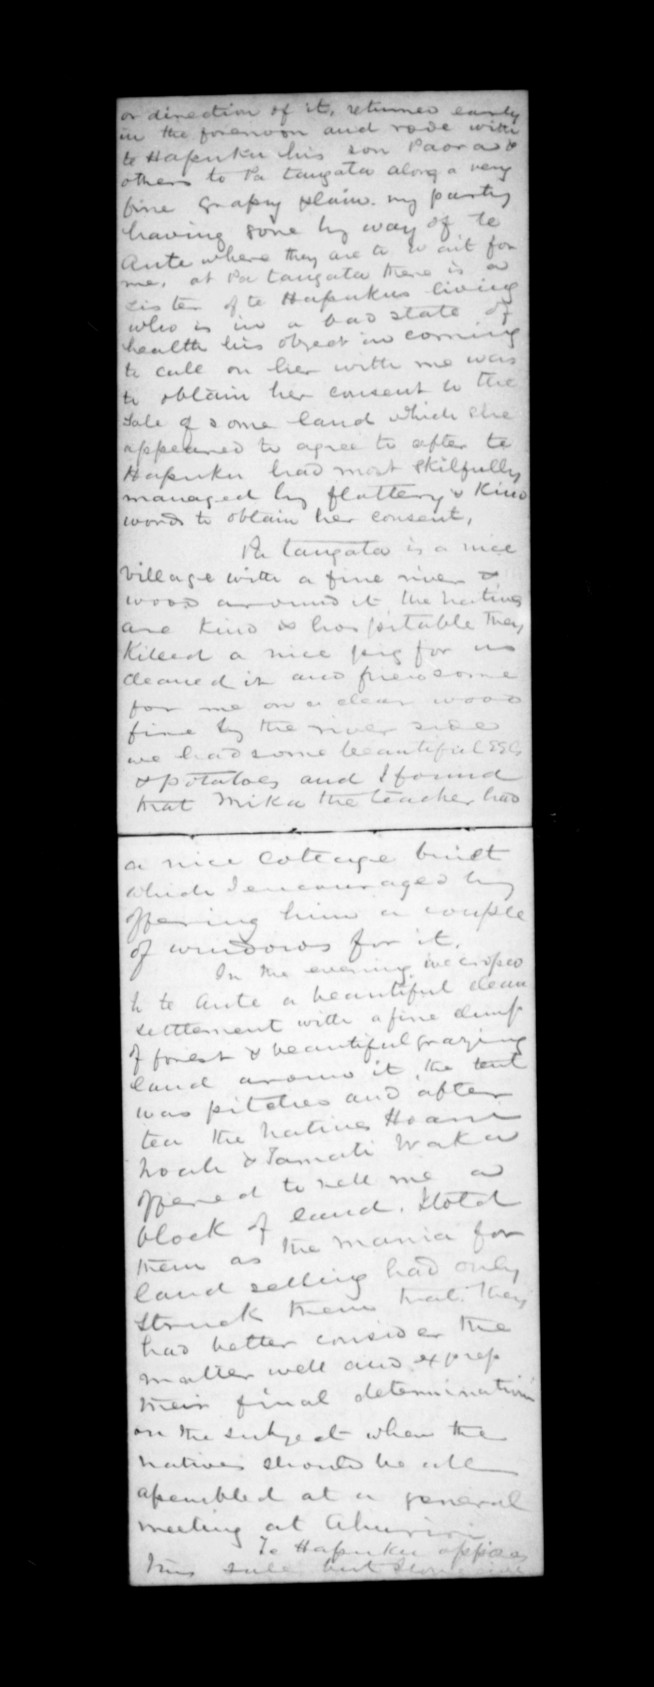 or direction of it, returned early
in the forenoon and rode with
te Hapuku his son Paora &
others to Pa tangata along a very
fine grassy plain. my party
having gone by way of te
Aute where they are to wait for
me, at Pa tangata there is a
sister of te Hapukus living
who is in a bad state of
health his object in coming
to call on her with me was
to obtain her consent to the
sale of some land which she
appeared to agree to after te
Hapuku had most skilfully
managed by flattery & kind
words to obtain her consent,
Pa tangata is a nice
village with a fine river &
wood around it the natives
are kind & hospitable they
killed a nice pig for us
cleaned it and fried some
for me on a clear wood
fire by the river side
we had some beautiful Egs
& potatoes and I found
that Mika the teacher had
a nice cottage built
which I encouraged by
offering him a couple
of windows for it.
In the evening we
to te Aute a beautiful clean
settlement with a fine clump
of forest & beautiful grazing
land around it the tent
was pitched and after
tea the natives Hoani
& Tamati Waka
offered to sell me a
block of land. I told
them as the mania for
land selling had only
struck them that they
had better consider the
matter well and express
their final determination
on the subject when the
natives should be all
assembled at a general
meeting at Ahuriri
Te Hapuku opposes
this sale but